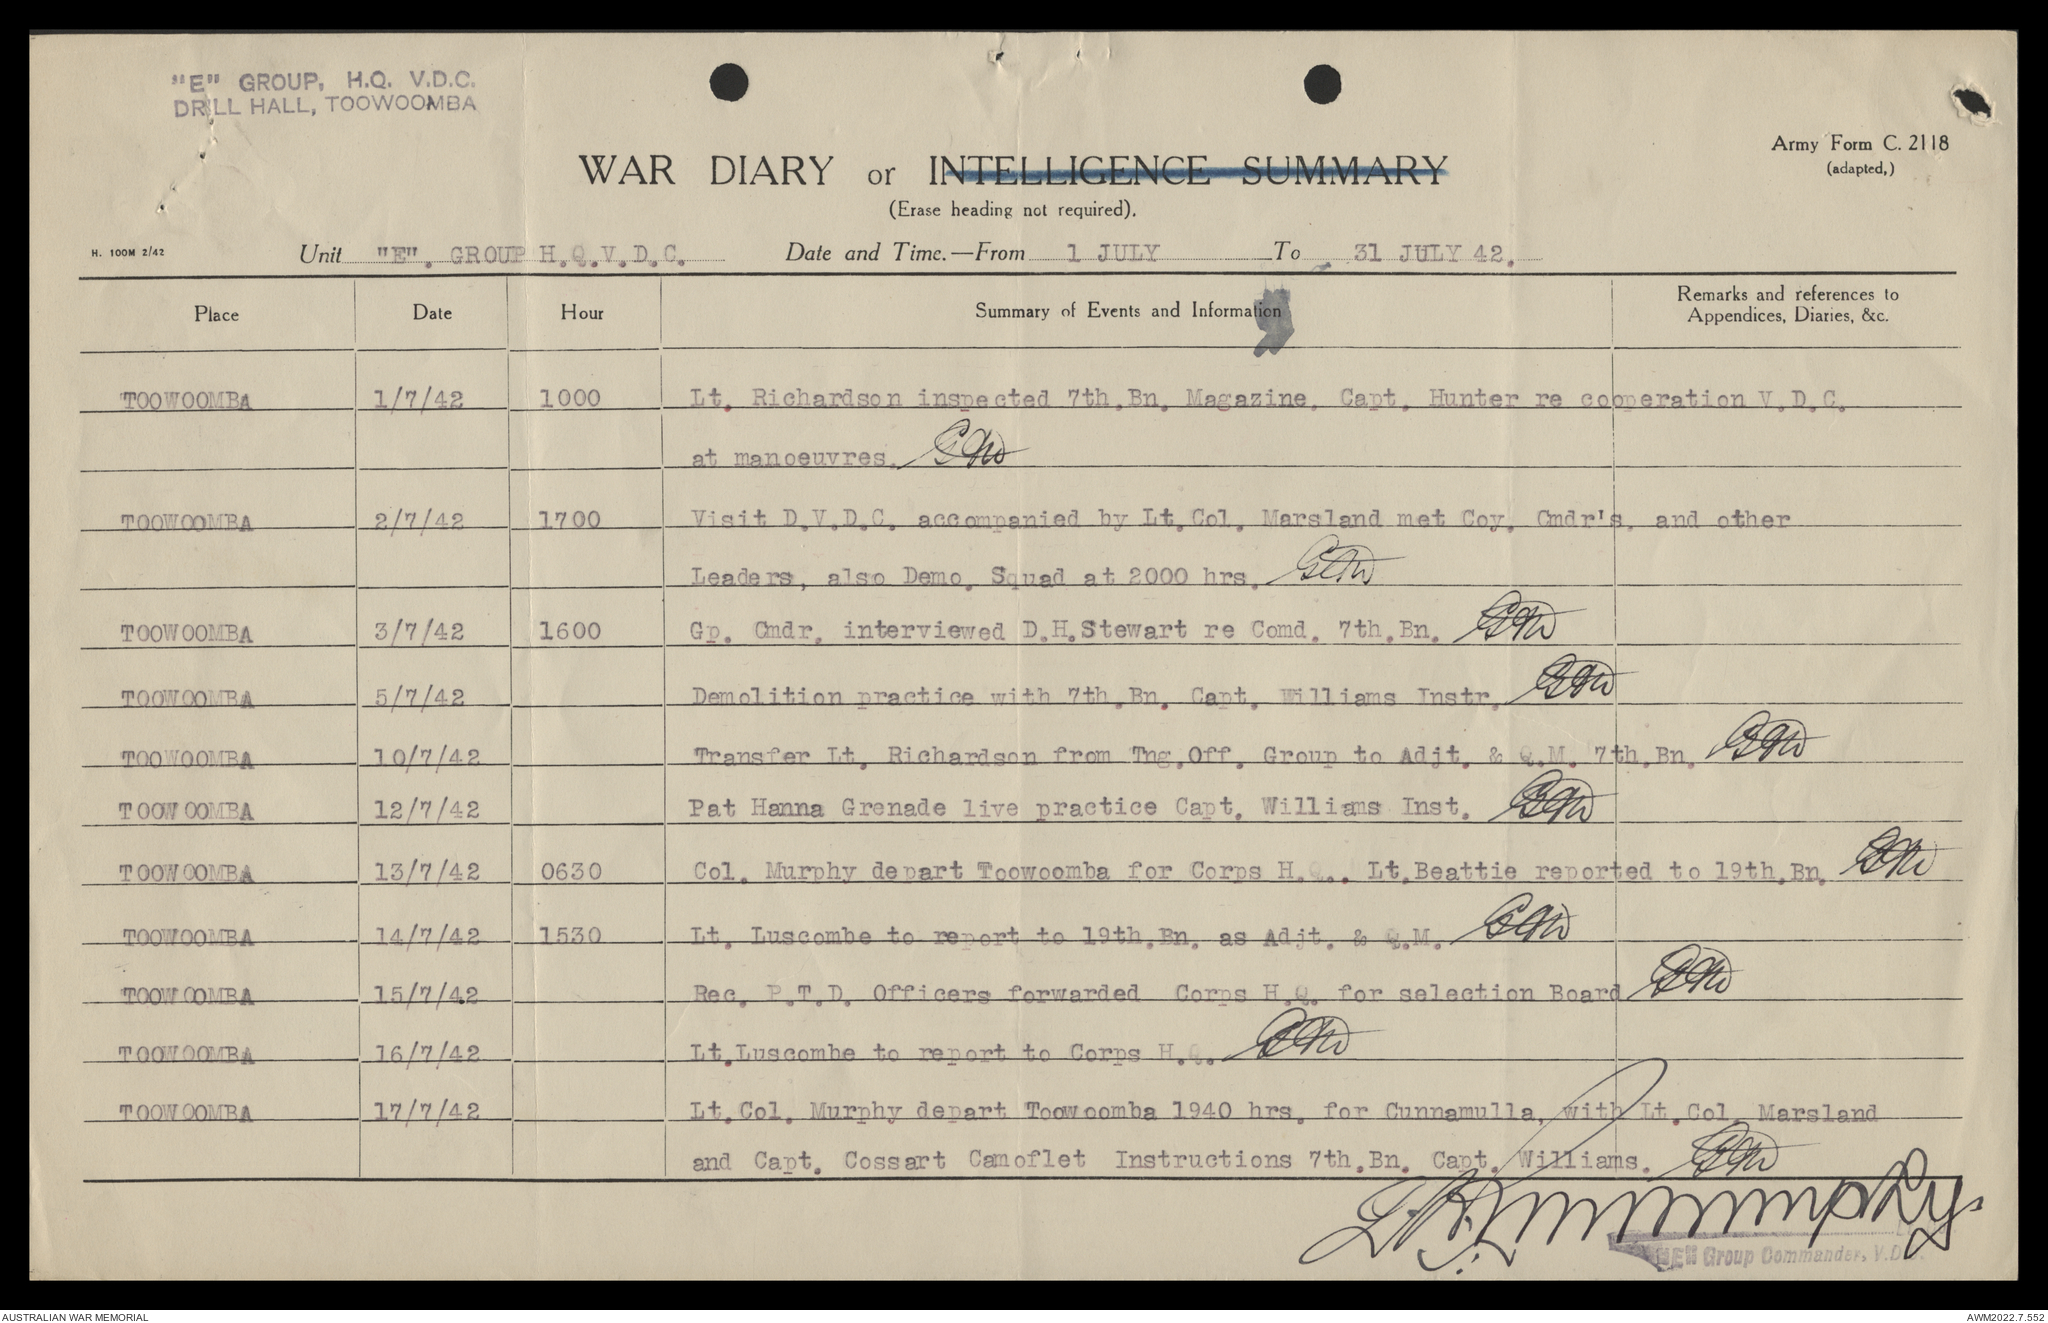 "E" GROUP, H.Q. V.D.C.
DRILL HALL, TOOWOOMBA
Army Form C. 2118
(adapted,)
WAR DIARY or INTELLIGENCE SUMMARY
(Erase heading not required).
H. 100M 2/42
Unit "E". GROUP H.Q.V.D.C. Date and Time.—From 1 JULY To 31 JULY 42.
Place Date Hour Summary of Events and Information Remarks and references to
Appendices, Diaries, &c.
TOOWOOMBA 1/7/42 1000 Lt. Richardson inspected 7th.Bn. Magazine. Capt. Hunter re cooperation V.D.C.
at manoeuvres.
TOOWOOMBA 2/7/42 1700 Visit D.V.D.C. accompanied by Lt.Col. Marsland met Coy. Cmdr's. and other
Leaders, also Demo. Squad at 2000 hrs.
TOOWOOMBA 3/7/42 1600 Gp. Cmdr. interviewed D.H.Stewart re Comd. 7th.Bn.
TOOWOOMBA 5/7/42 Demolition practice with 7th.Bn. Capt. Williams Instr.
TOOWOOMBA 10/7/42 Transfer Lt. Richardson from Tng.Off. Group to Adjt. & Q.M. 7th.Bn.
TOOWOOMBA 12/7/42 Pat Hanna Grenade live practice Capt. Williams Inst.
TOOWOOMBA 13/7/42 0630 Col. Murphy depart Toowoomba for Corps H.Q.. Lt.Beattie reported to 19th.Bn.
TOOWOOMBA 14/7/42 1530 Lt. Luscombe to report to 19th.Bn. as Adjt. & Q.M.
TOOWOOMBA 15/7/42 Rec. P.T.D. Officers forwarded Corps H.Q. for selection Board
TOOWOOMBA 16/7/42 Lt.Luscombe to report to Corps H.Q.
TOOWOOMBA 17/7/42 Lt.Col. Murphy depart Toowoomba 1940 hrs. for Cunnamulla, with Lt.Col. Marsland
and Capt. Cossart Camoflet Instructions 7th.Bn. Capt. Williams.
Murphy
"E" Group Commander, V.D.C.
AUSTRALIAN WAR MEMORIAL
AWM2022.7.552